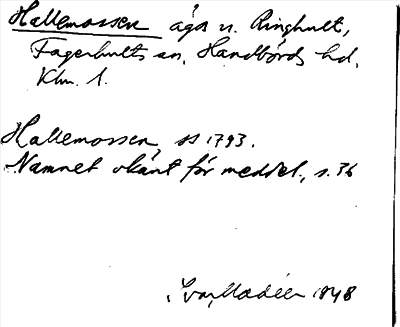 Hallemossen ägor n. Ringhult,
Fagerhults sn, Handbörds hd,
Klm. l.
Hallemossen, ss 1793.
Namnet okänt för meddel., s. 36
Ivar Modéer 1948